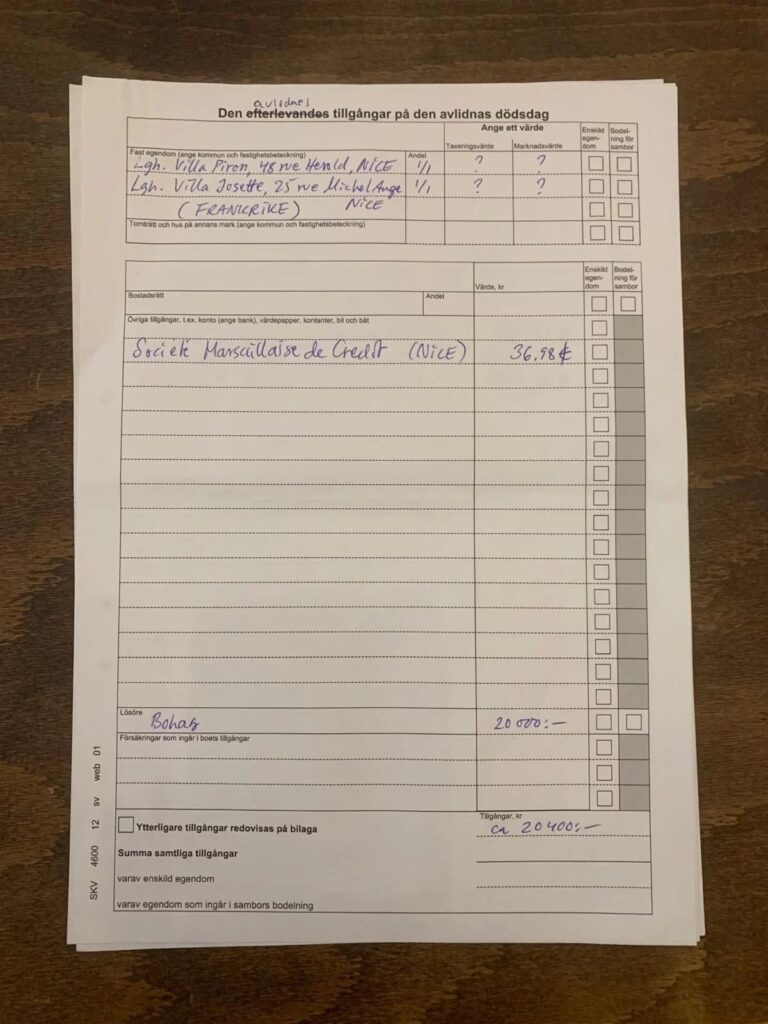 avlidnes
Den efterlevandes tillgångar på den avlidnas dödsdag
Ange ett värde
Enskild egen-dom
Bodel-ning för sambor
Taxeringsvärde
Marknadsvärde
Fast egendom (ange kommun och fastighetsbeteckning)
Andel
Lgh. Villa Piron, 48 rue Herold, NICE 1/1 ? ?
Lgh. Villa Josette, 25 rue Michel Ange 1/1 ? ?
(FRANKRIKE) NICE
Tomträtt och hus på annans mark (ange kommun och fastighetsbeteckning)
Värde, kr
Enskild egen-dom
Bodel-ning för sambor
Bostadsrätt
Andel
Övriga tillgångar, t.ex. konto (ange bank), värdepapper, kontanter, bil och båt
Société Marseillaise de Credit (NICE) 36.98 €
Lösöre
Bohag 20 000:-
Försäkringar som ingår i boets tillgångar
Ytterligare tillgångar redovisas på bilaga
Tillgångar, kr
ca 20 400:-
Summa samtliga tillgångar
varav enskild egendom
varav egendom som ingår i sambors bodelning
SKV 4600 12 sv web 01